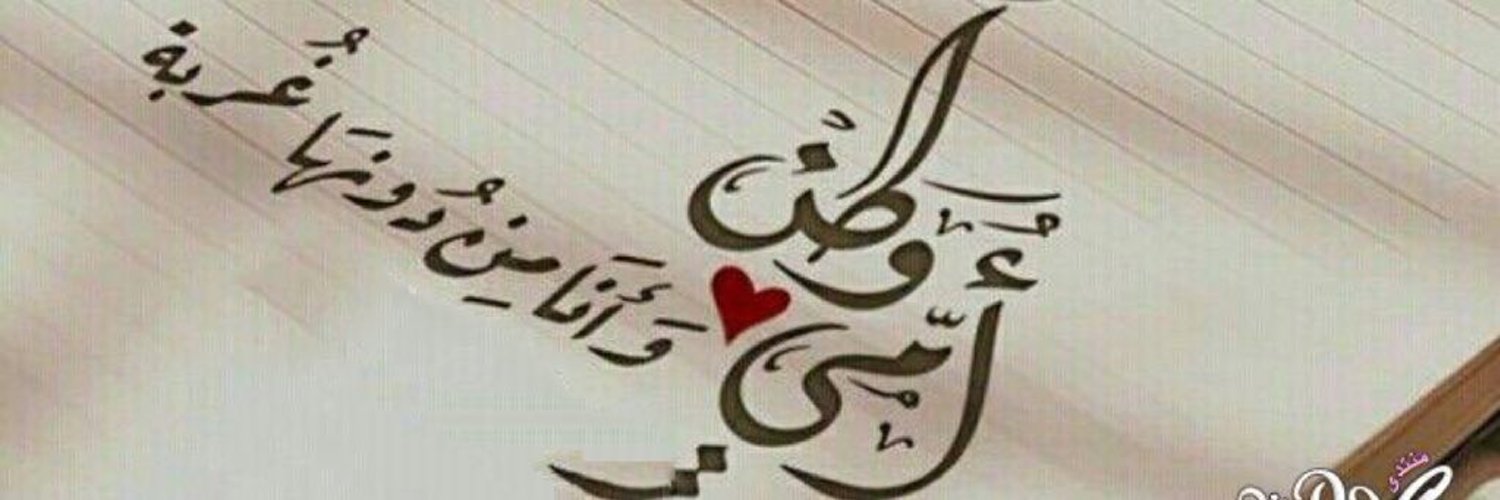 أُمّي
وطن
وَأَنَا مِن دُونهَا غُربة
منتدى